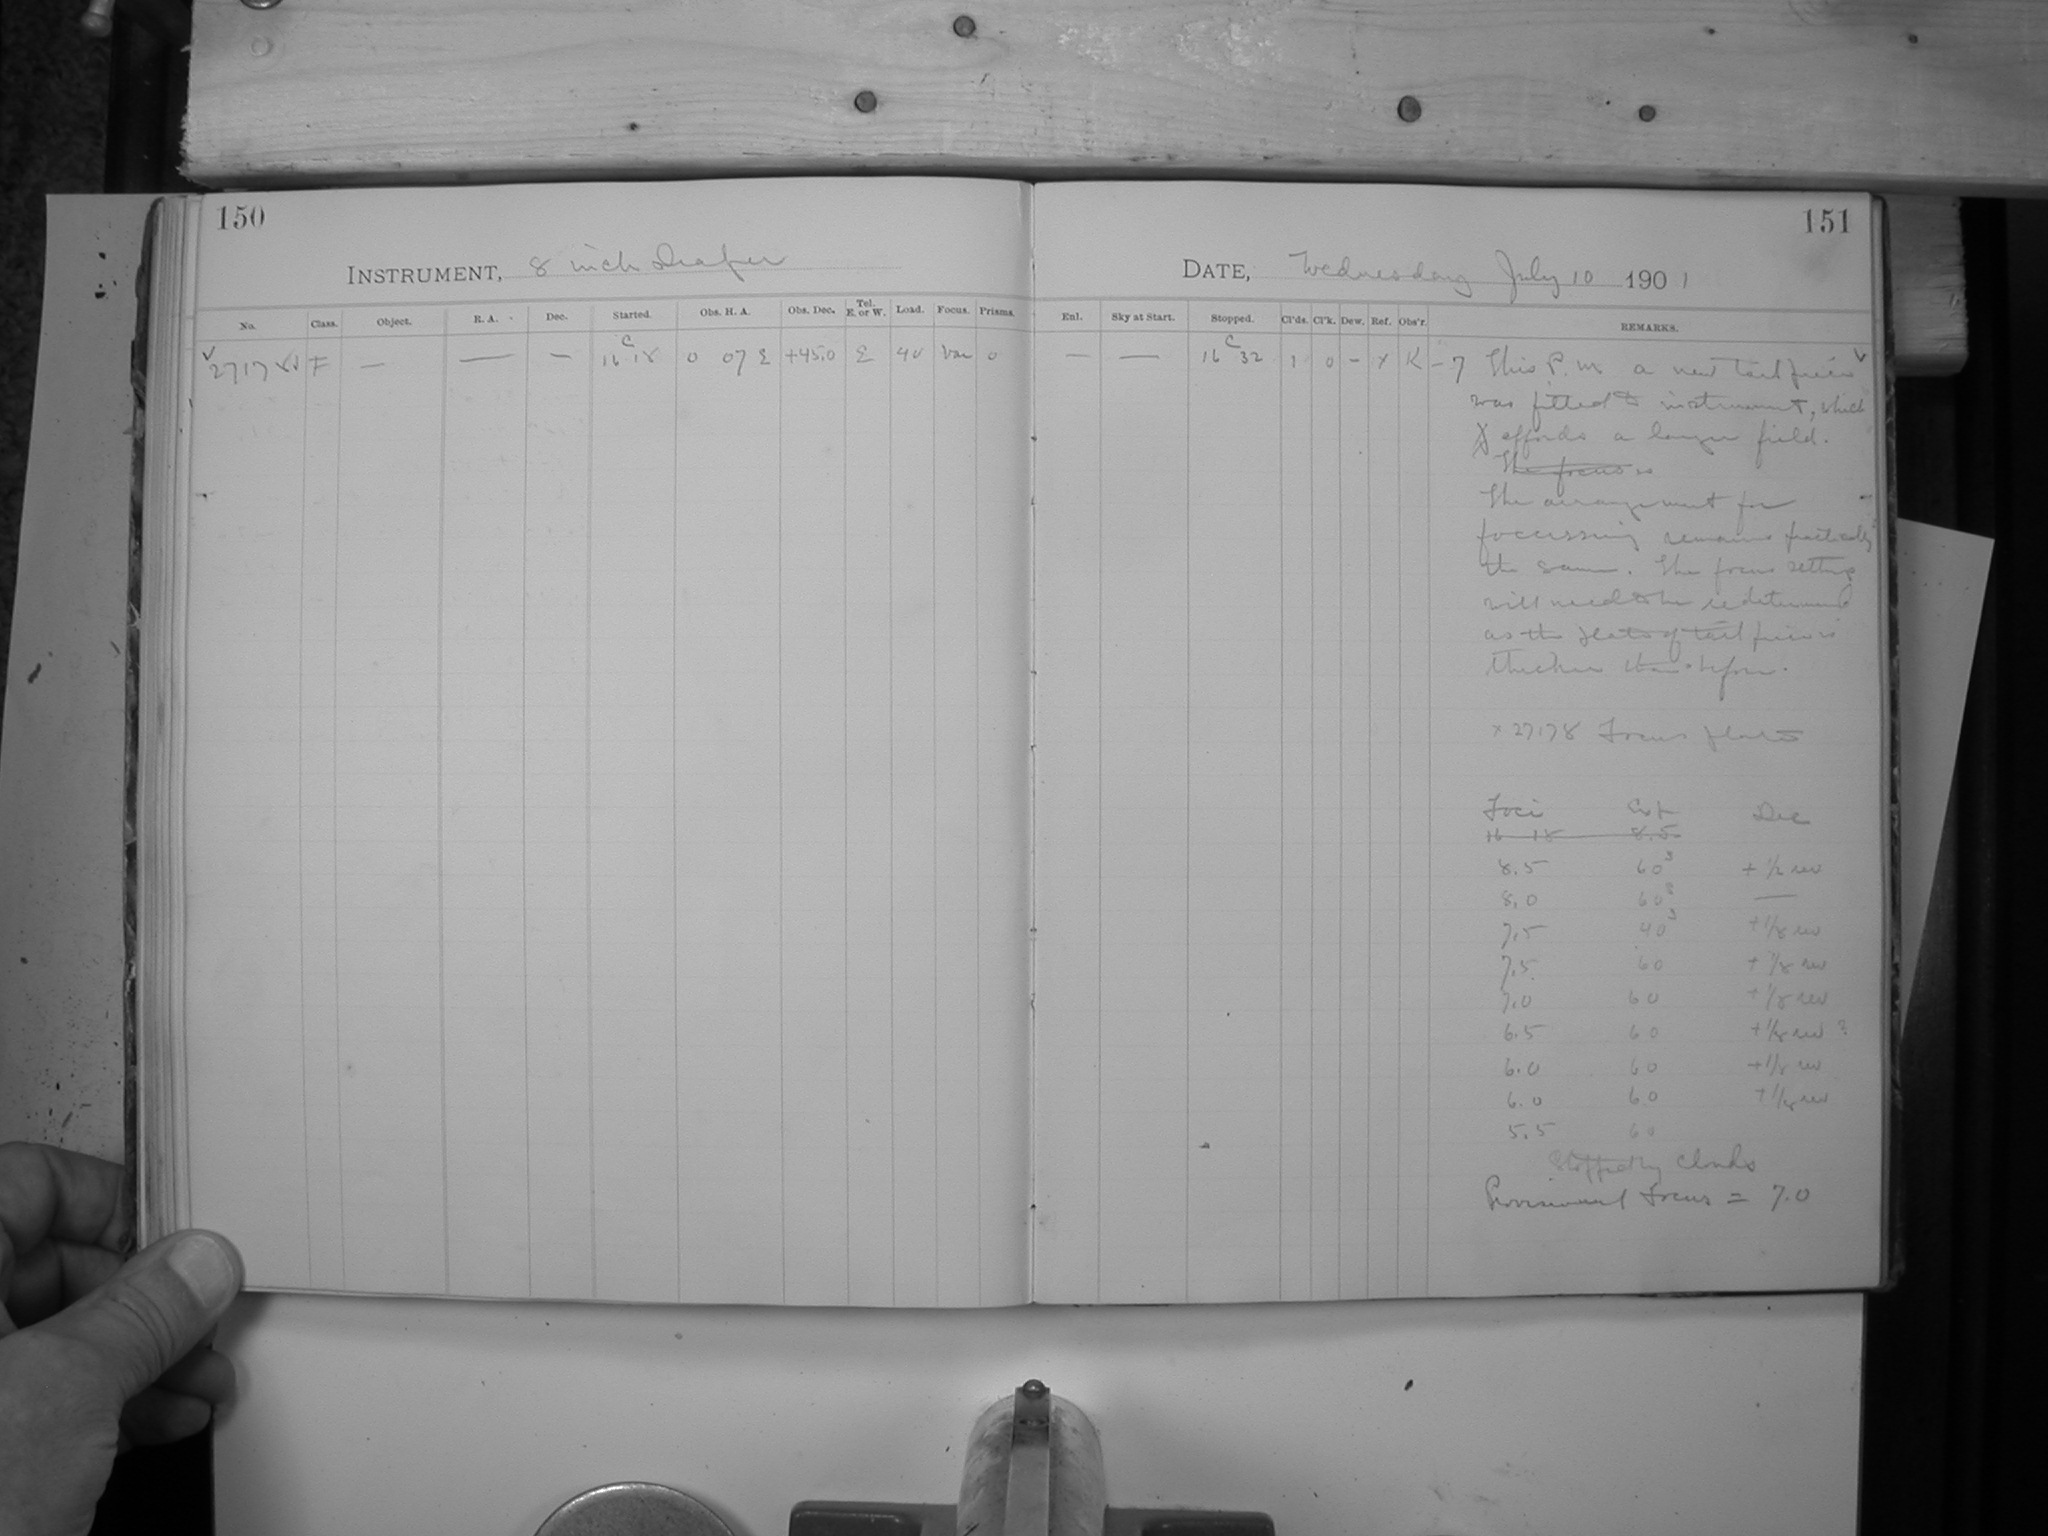 150
151
INSTRUMENT, 8 inch Draper
DATE, Wednesday July 10 1901
No. Class. Object. R. A. Dec. Started. Obs. H. A. Obs. Dec. Tel. E. or W. Load. Focus. Prisms.
Enl. Sky at Start. Stopped. Cl'ds. Cl'k. Dew. Ref. Obs'r. REMARKS.
27178 F — — — 16 18 0 07 E +45.0 E 40 Var 0
— — 16 32 1 0 – x K – 7 This P.M. a new tail piece
was fitted to instrument, which
affords a larger field.
The focus is
The arrangement for
focussing remains practically
the same. The focus setting
will need to be redetermined
as the plate of tail piece is
thicker than before.
x 27178 Focus plate
Foci Exp Dec
16 18 8.5
8.5 60 s + 1/2 rev
8.0 60 s —
7.5 40 s + 1/8 rev
7.5 60 + 1/8 rev
7.0 60 + 1/8 rev
6.5 60 + 1/8 rev ?
6.0 60 + 1/8 rev
6.0 60 + 1/8 rev
5.5 60
Stopped by clouds
Provisional Focus = 7.0